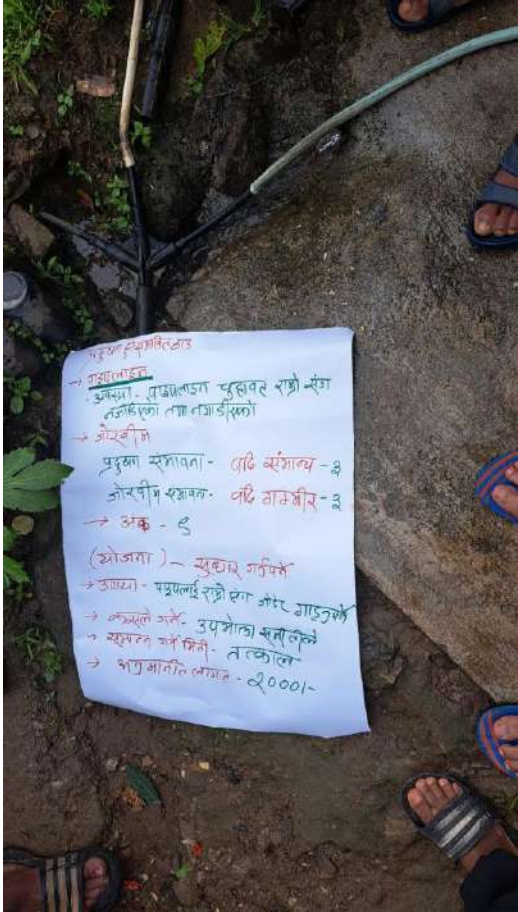 प्रदुषण हुने
→ पाइपलाइन
अवस्था - पाइपलाइन राम्रो संग
नजोडिएको तथा नगाडीएको
→ जोखीम
प्रदुषण संभावना - बढि संभाव्य - ३
जोखीम संभावना - बढि गम्भीर - ३
→ अंक - ९
(योजना) - सुधार गर्नुपर्ने
→ उपाय - पाइपलाई राम्रो संग जोडेर गाड्नुपर्ने
→ कसले गर्ने - उपभोक्ता
→ सम्पन्न गर्ने मिती - तत्काल
→ अनुमानीत लागत - २०००।-